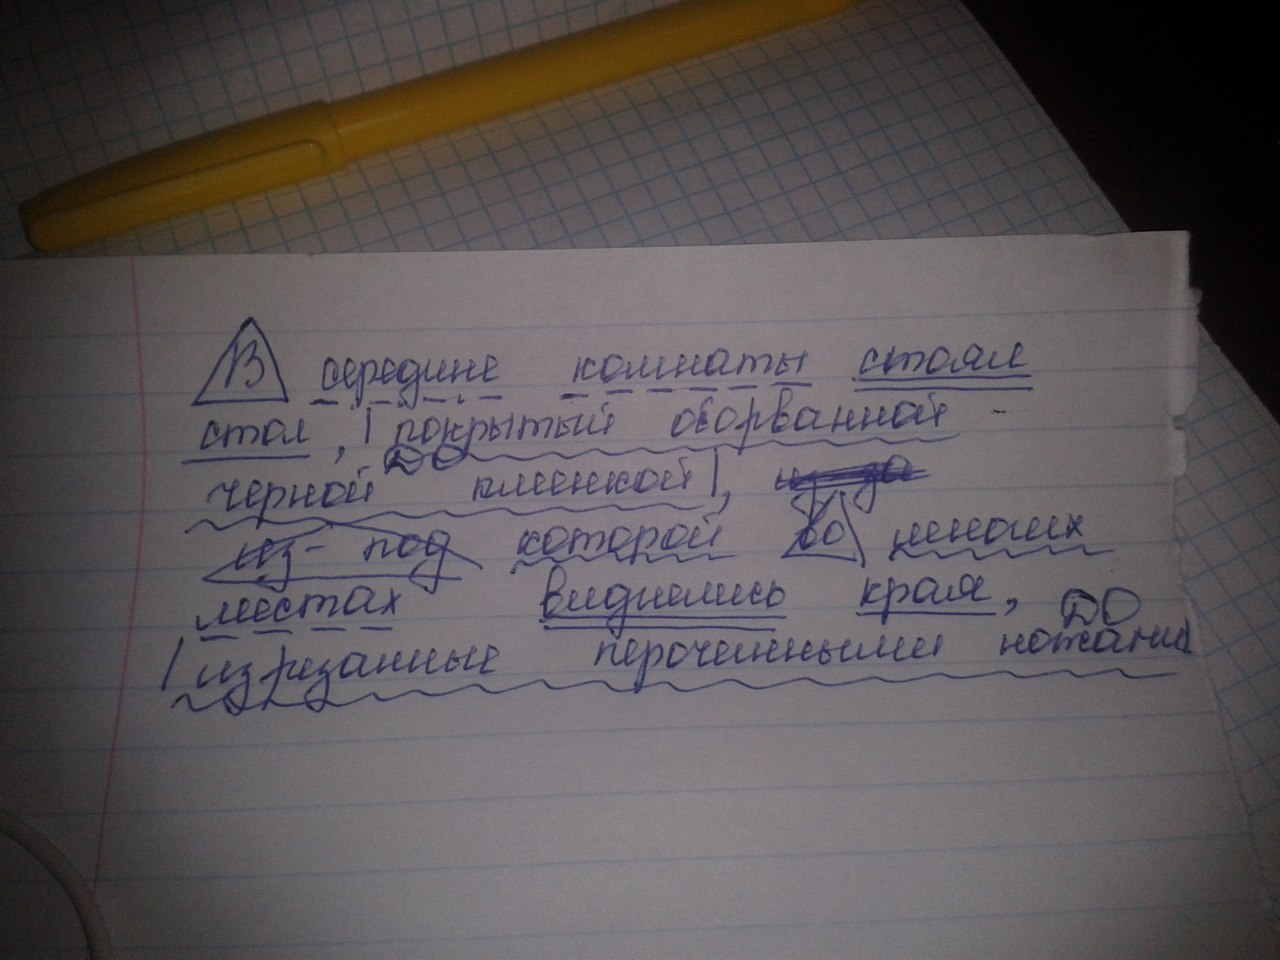 В середине комнаты стоял
стол, | покрытый оборванной
ДО
черной клеенкой|,
из-под которой во многих
местах виднелись края,
ДО
|изрезанные перочинными ножами